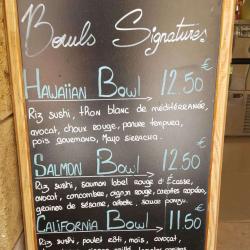 Bowls Signatures
HAWAIIAN BOWL → 12.50 €
Riz sushi, thon blanc de méditérranée,
avocat, choux rouge, panure tempura,
pois gourmand, Mayo sieracha.
SALMON BOWL → 12.50 €
Riz sushi, saumon label rouge d'Écosse,
avocat, concombre, oignon rouge, carottes rapées,
graines de sésame, sauce ponzu.
CALIFORNIA BOWL → 11.50 €
Riz sushi, poulet rôti, maïs, avocat,